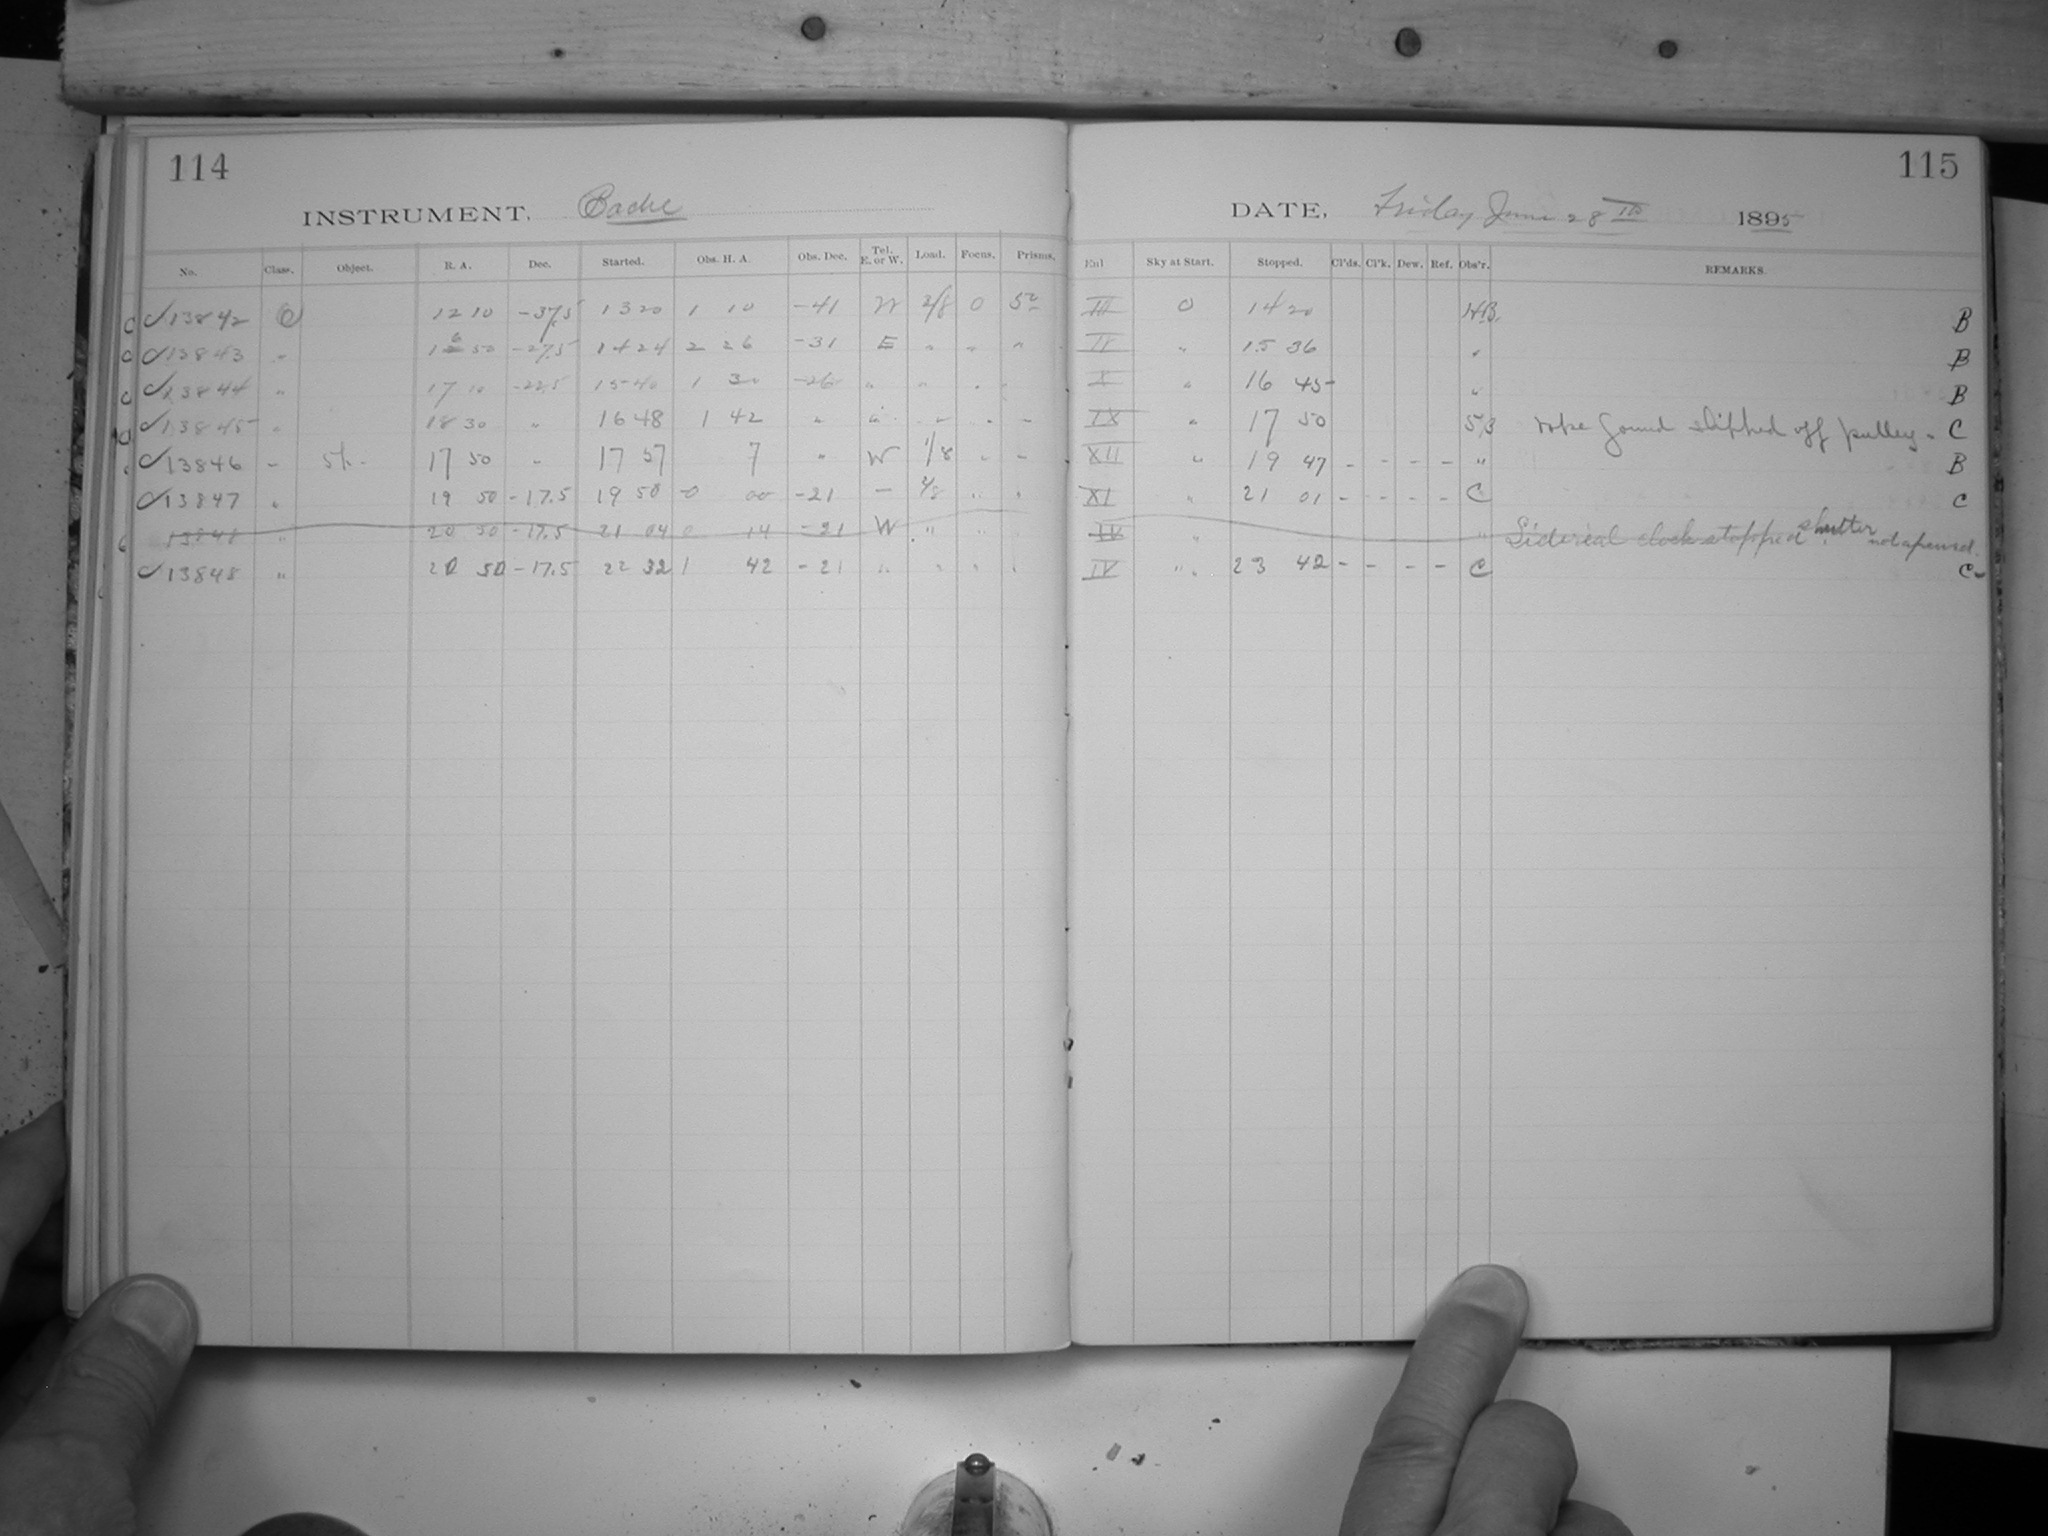 114
INSTRUMENT. Bache
No. Class. Object. R. A. Dec. Started. Obs. H. A. Obs. Dec. Tel. E. or W. Load. Focus. Prisms.
C ✓13842 12 10 -37.5 13 20 1 10 -41 W 2/8 0
C ✓13843 " 50 -27.5 14 24 2 26 -31 E " " "
C ✓13844 " 17 10 -22.5 15 40 1 30 -26 " " " "
✓13845 " 18 30 " 16 48 1 42 " " " " "
✓13846 - 17 50 " 17 57 7 " W 1/8 " -
✓13847 " 19 50 -17.5 19 50 -0 00 -21 - " "
13848 " 20 50 -17.5 21 04 0 14 -21 W " " "
✓13848 " 20 50 -17.5 22 32 1 42 -21 " " " "
115
DATE, Friday June 28th 1895
Sky at Start. Stopped. Cl'ds. Cl'k. Dew. Ref. Obs'r. REMARKS.
III 0 14 20 B
II " 15 36 " B
X " 16 45 " B
IX " 17 50 rope found slipped off pulley. C
XII " 19 47 - - - - " B
XI " 21 01 - - - - C C
" " Sidereal clock stopped shutter not opened.
IV " 23 42 - - - - C C